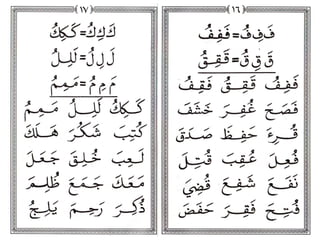 ﴿١٦﴾
فَ فِ فُ = فَفِفُ
قَ قِ قُ = قَقِقُ
فَفِفُ قَقِقُ فَقِفُ
فَصَحَ غُفِرَ خَشَفَ
قُرِءَ حَفِظَ صَدَقَ
فُعِلَ عُقِبَ قُتِلَ
نَفَعَ شَفِعَ قُضِيَ
فُتِحَ فَقِرَ حَفَضَ
﴿١٧﴾
كَ كِ كُ = كَكِكُ
لَ لِ لُ = لَلِلُ
مَ مِ مُ = مَمِمُ
كَكِكُ لَلِلُ مَمِمُ
كُتِبَ شَكُرَ هَلَكَ
لَعِبَ خُلِقَ جَعَلَ
مَعَكَ جَمَعَ ظُلِمَ
ذُكِرَ رَحِمَ يَلِجُ